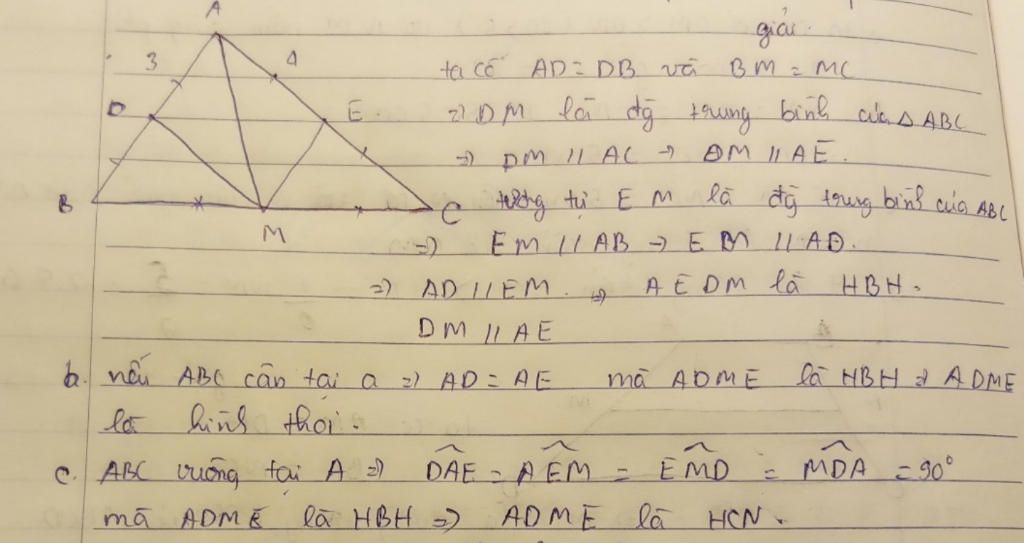 A
giải.
3
4
ta có AD = DB và BM = MC
D
E
=> DM là đg trung bình của Δ ABC
=> DM // AC → DM // AE.
B
C
tương tự EM là đg trung bình của ABC
M
=> EM // AB → EM // AD.
=> AD // EM => AEDM là HBH.
DM // AE
b. nếu ABC cân tại a => AD = AE mà ADME là HBH => ADME
là hình thoi.
c. ABC vuông tại A => DAE = AEM = EMD = MDA = 90°
mà ADME là HBH => ADME là HCN.